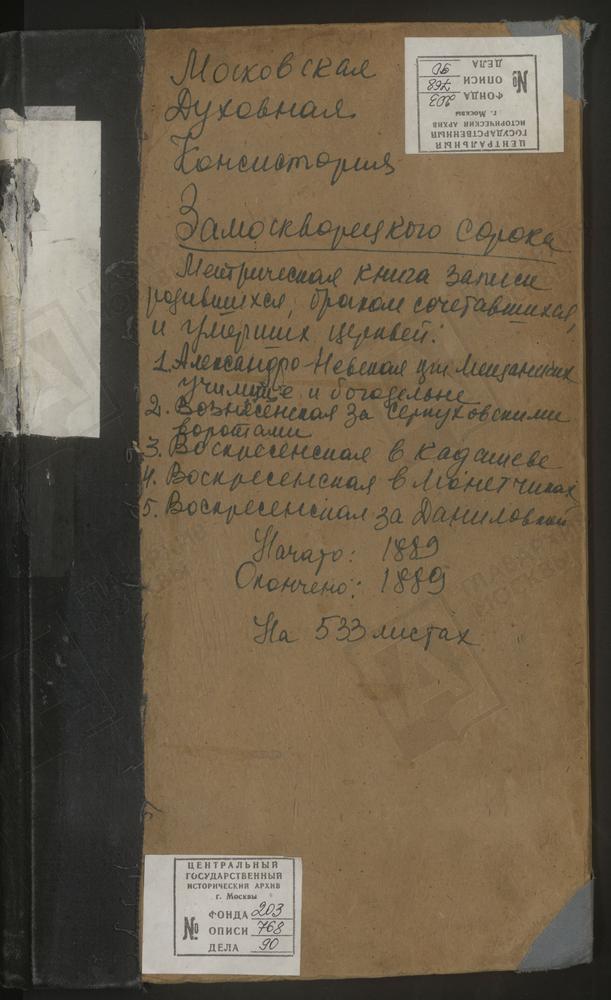 Московская
Духовная
Консистория
Замоскворецкого сорока
Метрическая книга записи
родившихся, браком сочетавшихся,
и умерших церквей:
1. Александро-Невская при Мещанских
училище и богадельне
2. Вознесенская за Серпуховскими
воротами
3. Воскресенская в Кадашеве
4. Воскресенская в Монетчиках
5. Воскресенская за Даниловкой
Начато: 1889
Окончено: 1889
На 533 листах
ЦЕНТРАЛЬНЫЙ
ГОСУДАРСТВЕННЫЙ
ИСТОРИЧЕСКИЙ АРХИВ
г. Москвы
№ ФОНДА 203
ОПИСИ 768
ДЕЛА 90
ЦЕНТРАЛЬНЫЙ
ГОСУДАРСТВЕННЫЙ
ИСТОРИЧЕСКИЙ АРХИВ
г. Москвы
№ ФОНДА 203
ОПИСИ 768
ДЕЛА 90